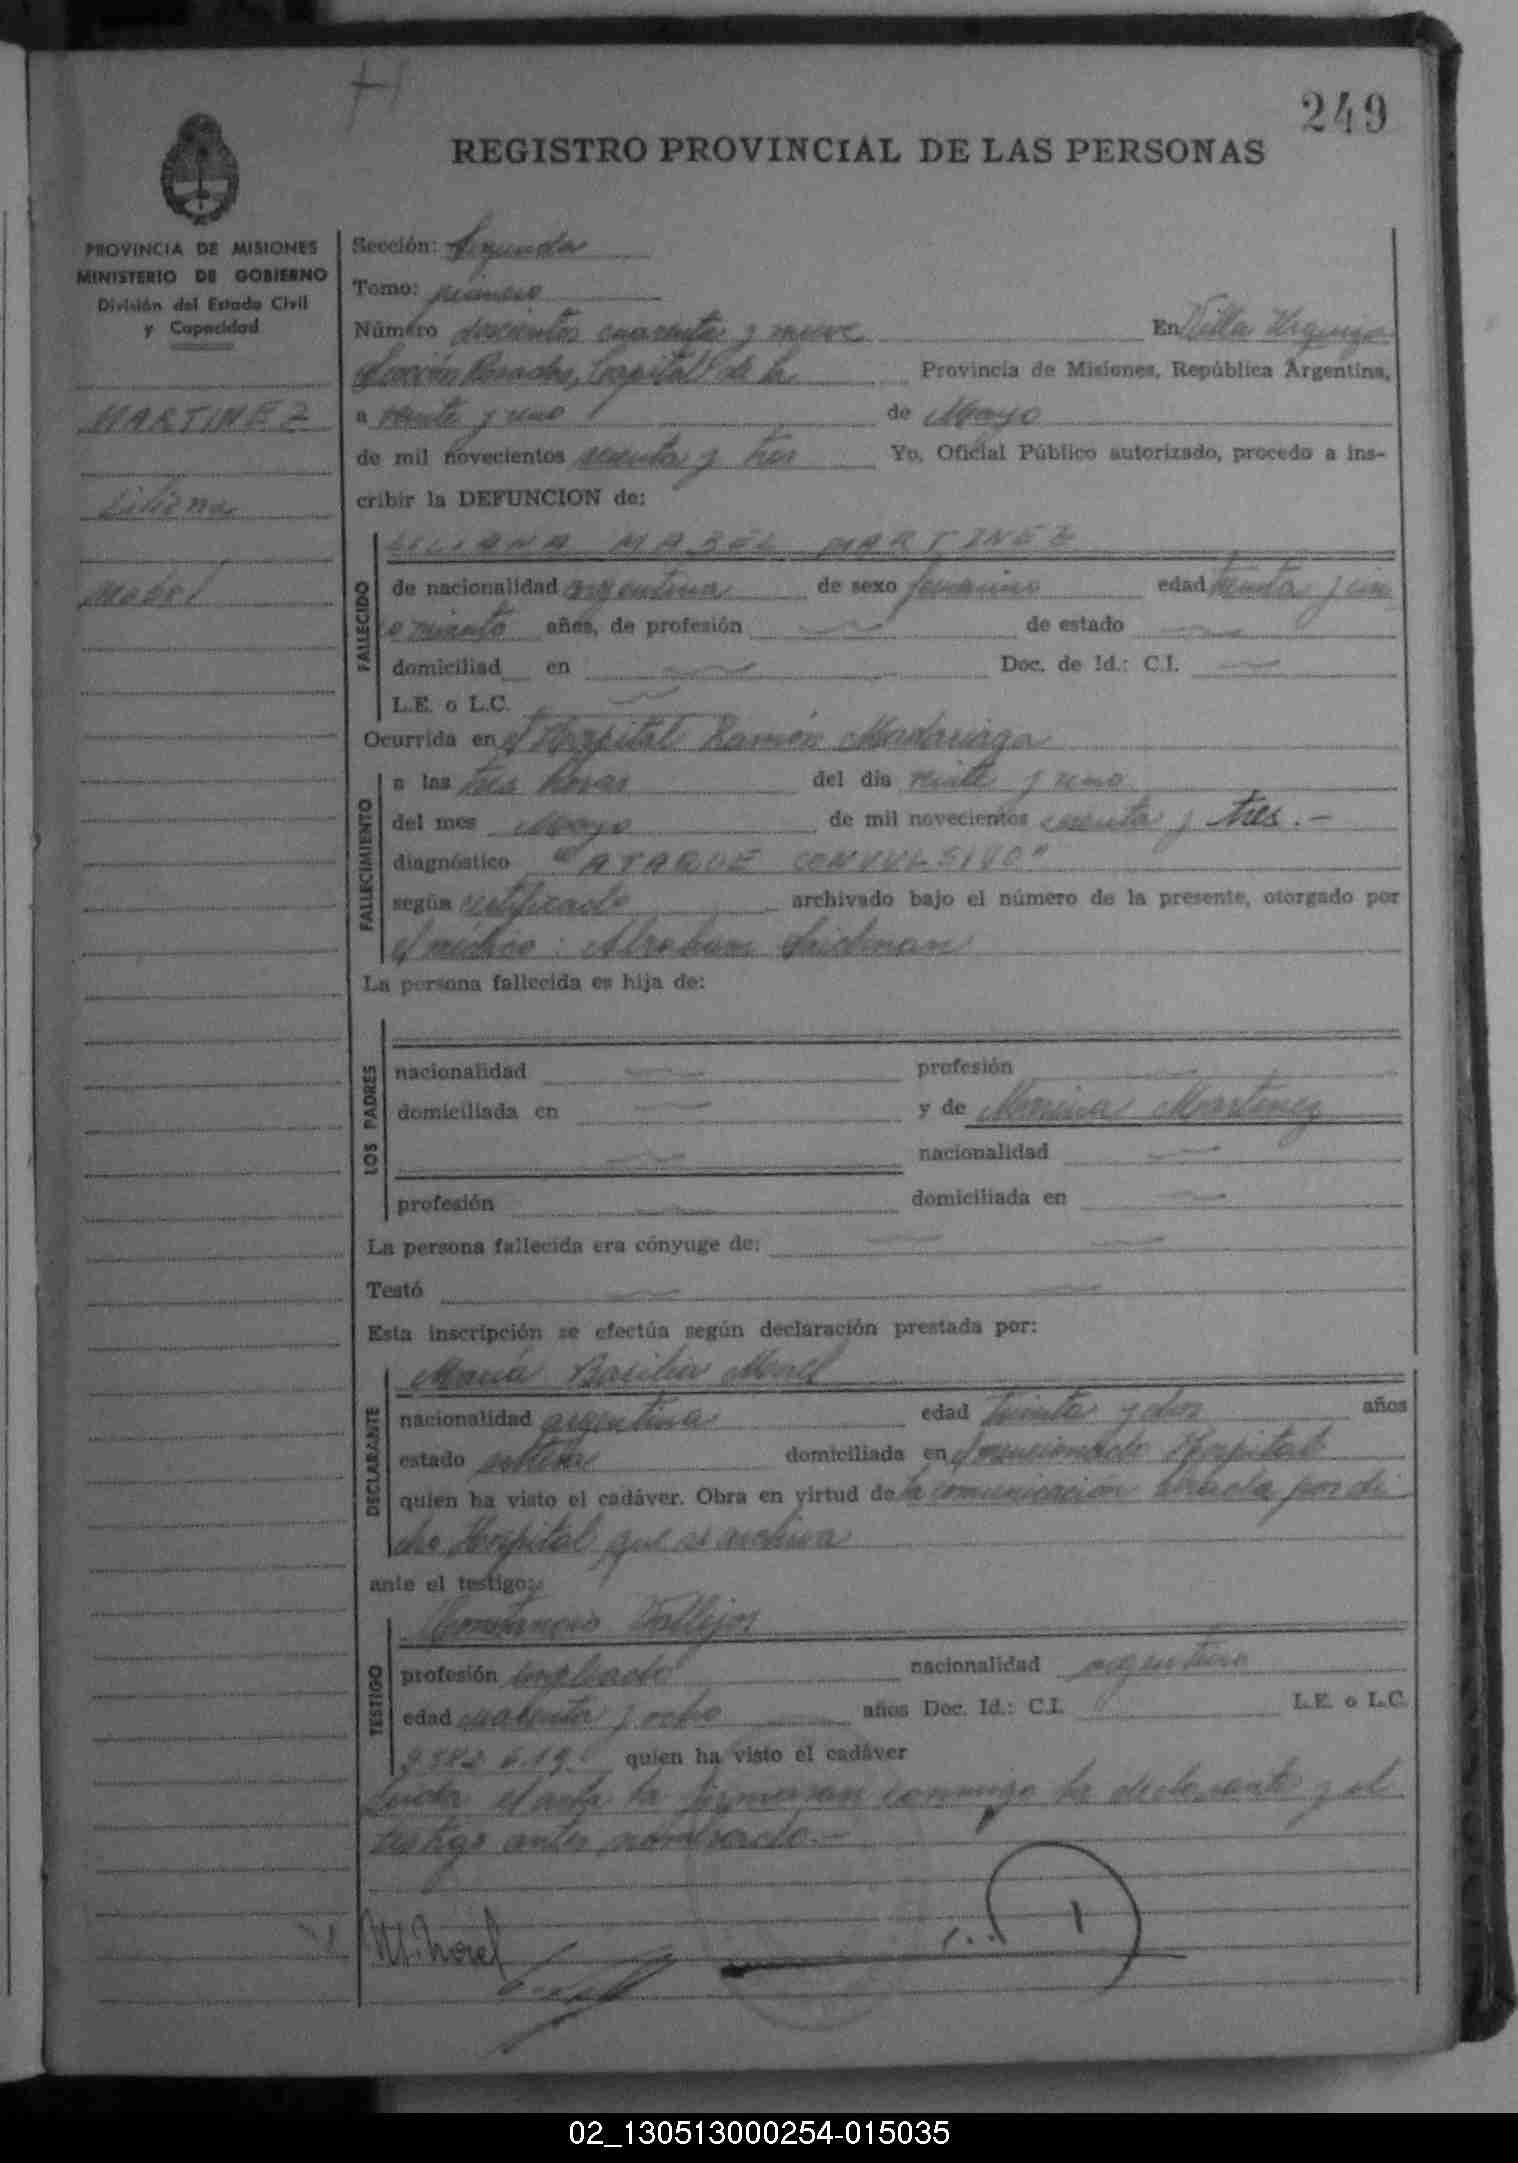 249
REGISTRO PROVINCIAL DE LAS PERSONAS
PROVINCIA DE MISIONES
MINISTERIO DE GOBIERNO
División del Estado Civil
y Capacidad
MARTINEZ
Liliana
Mabel
Sección: Segunda
Tomo: primero
Número doscientos cuarenta y nueve En Villa Urquiza
Sección Posadas, Capital de la Provincia de Misiones, República Argentina,
a veinte y uno de Mayo
de mil novecientos sesenta y tres Yo, Oficial Público autorizado, procedo a ins-
cribir la DEFUNCION de:
FALLECIDO
LILIANA MABEL MARTINEZ
de nacionalidad argentina de sexo femenino edad
años, de profesión de estado
domiciliad en Doc. de Id.: C.I.
L.E. o L.C.
Ocurrida en el Hospital Ramón Madariaga
FALLECIMIENTO
a las tres horas del día veinte y uno
del mes Mayo de mil novecientos sesenta y tres.-
diagnóstico "ATAQUE CONVULSIVO"
según certificado archivado bajo el número de la presente, otorgado por
el médico: Abraham
La persona fallecida es hija de:
LOS PADRES
nacionalidad profesión
domiciliada en y de Martinez
nacionalidad
profesión domiciliada en
La persona fallecida era cónyuge de:
Testó
Esta inscripción se efectúa según declaración prestada por:
DECLARANTE
María Basilia Morel
nacionalidad argentina edad treinta y dos años
estado soltera domiciliada en el mencionado Hospital
quien ha visto el cadáver. Obra en virtud de la comunicación enviada por di
cho Hospital que se archiva
ante el testigo:
TESTIGO
Constancio Vallejos
profesión empleado nacionalidad argentina
edad cuarenta y ocho años Doc. Id.: C.I. L.E. o L.C.
quien ha visto el cadáver
Leída el acta la firmaron conmigo la declarante y el
testigo antes nombrado.-
M. Morel
02_130513000254-015035